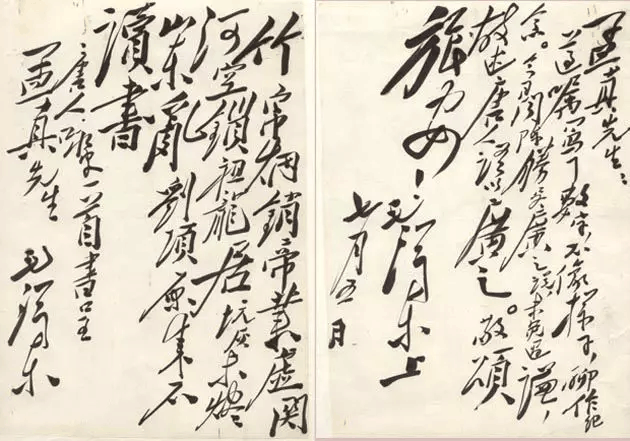 孟真先生：
遵嘱写了数字，不像样子，聊作纪
念。今日闻陈胜吴广之说，未免过谦，
故述唐人诗以广之。敬颂
旅安！
毛泽东上
七月五日
竹帛烟銷帝業虛関
河空鎖祖龍居坑灰未燼
山東亂劉項原来不
讀書
唐人咏史一首書呈
孟真先生
毛泽东